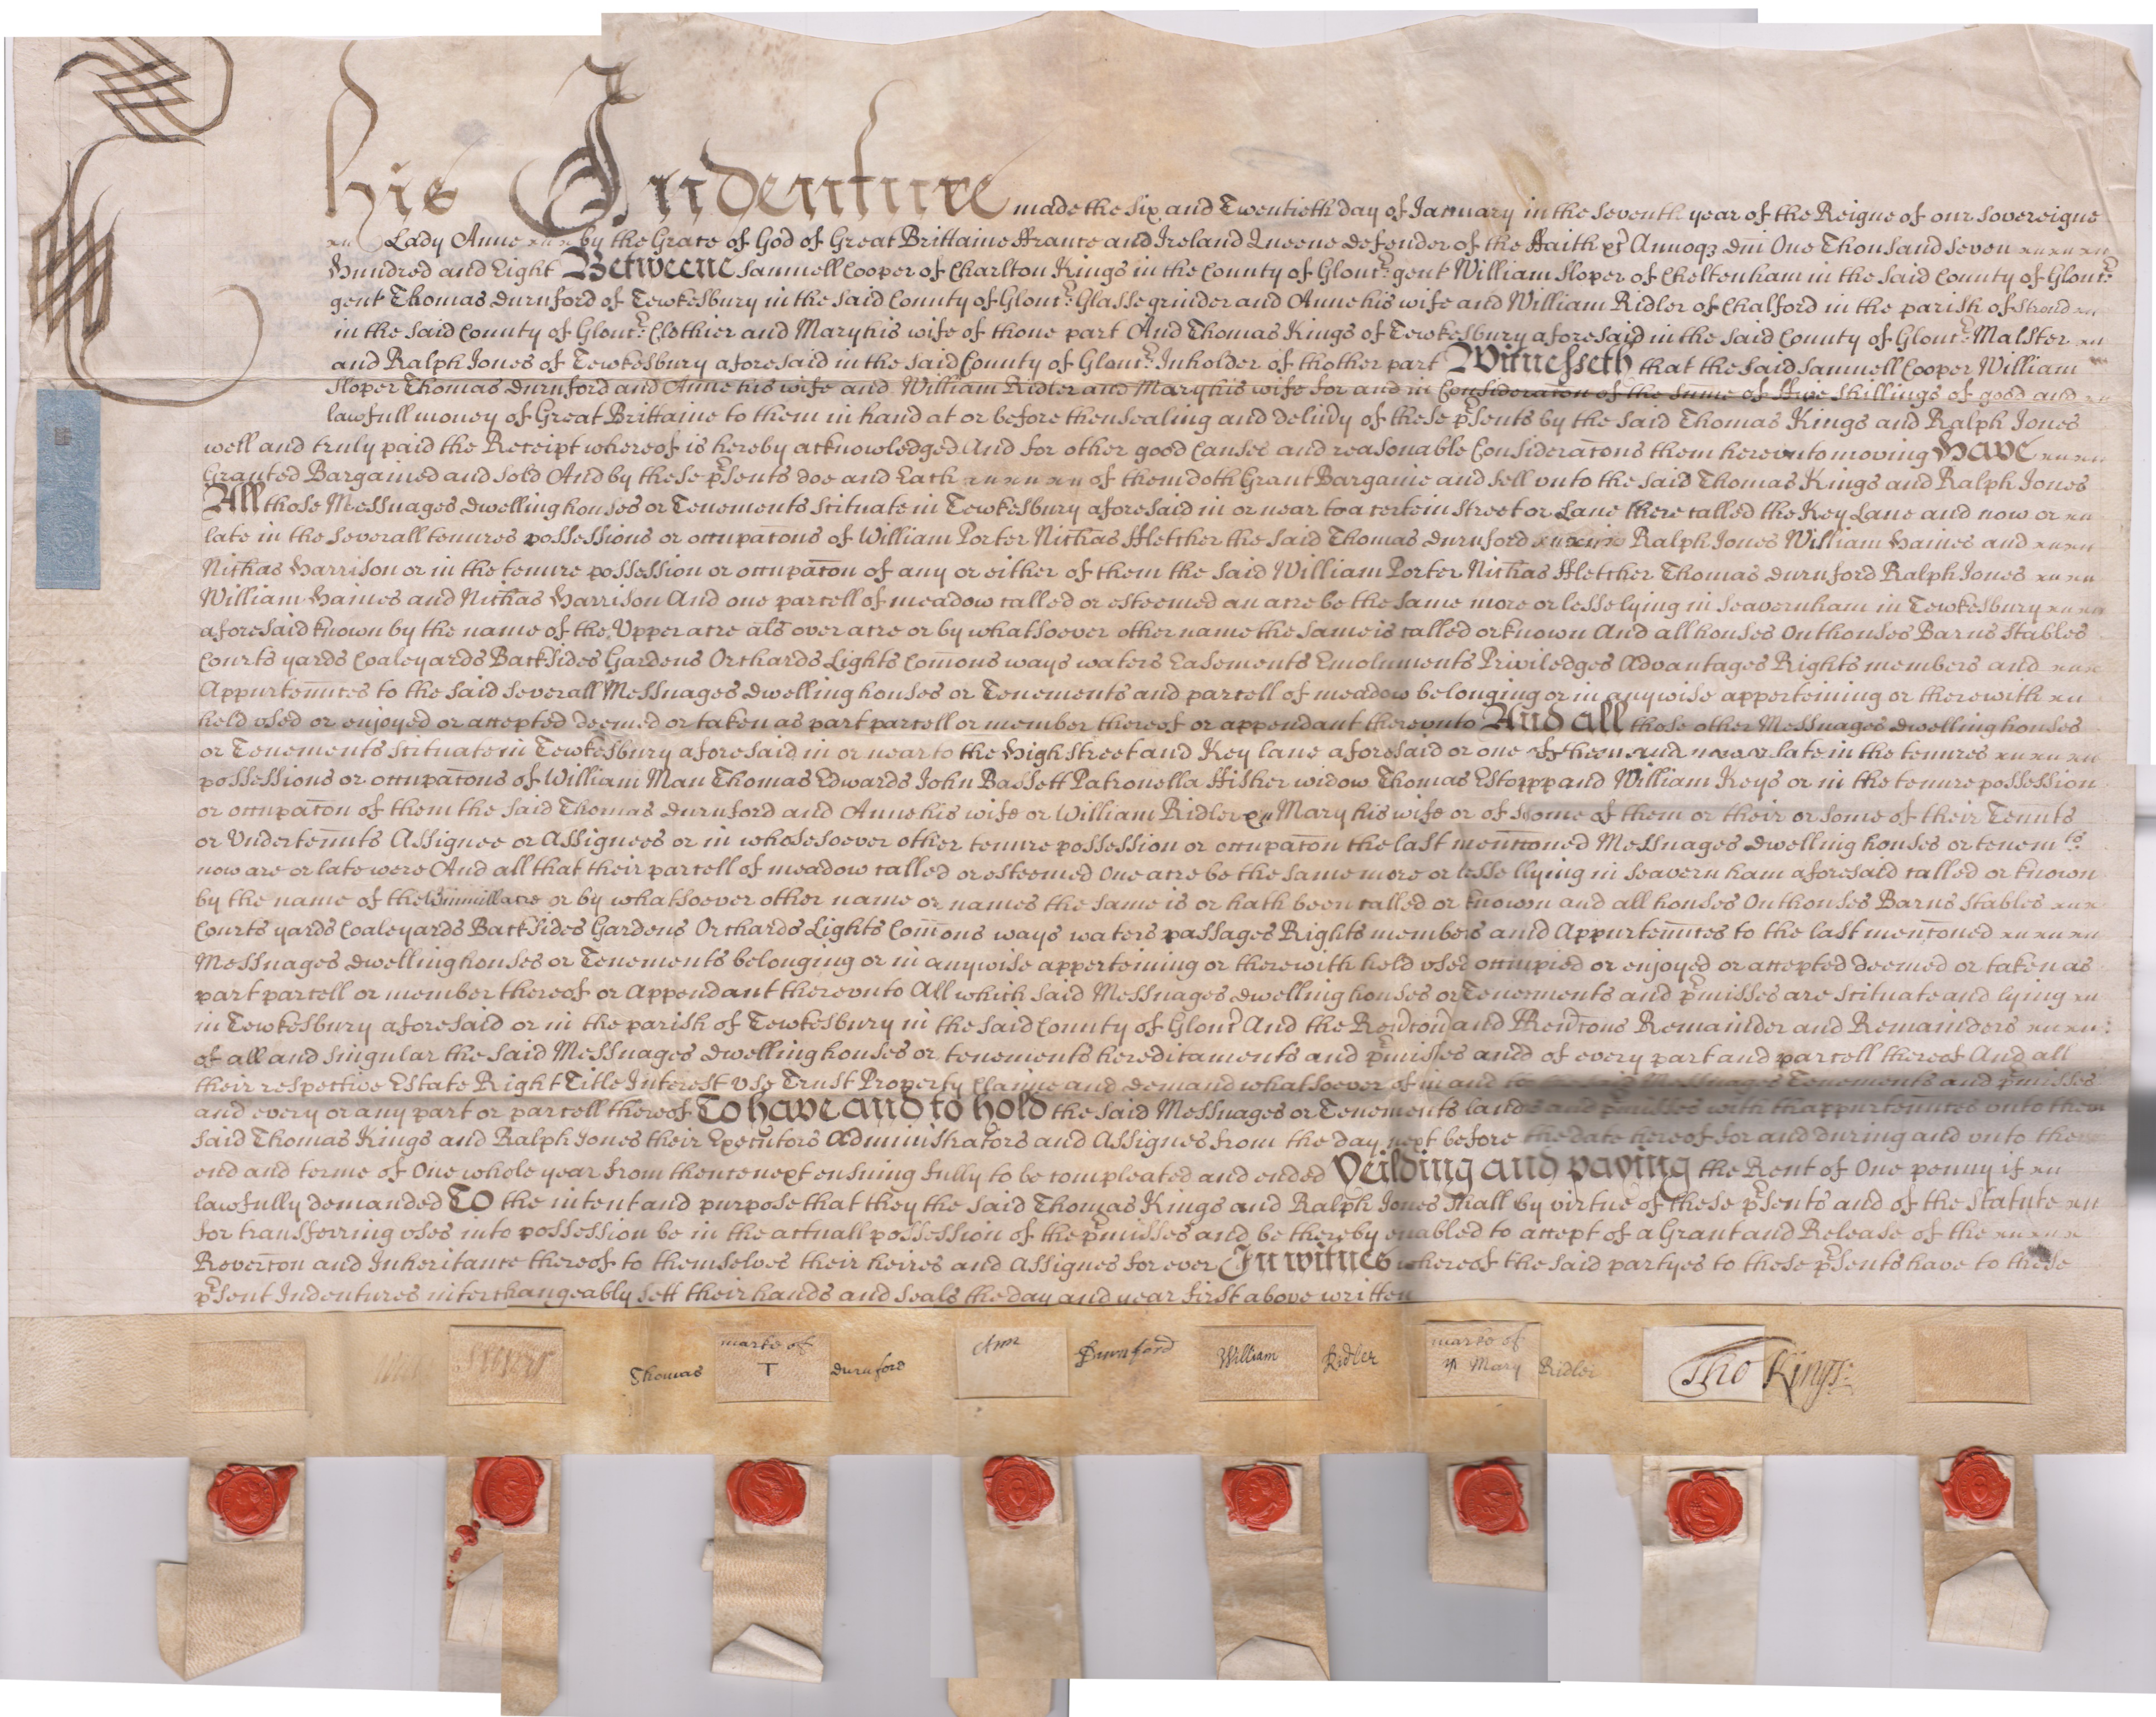 his Indenture made the Six and Twentieth day of January in the Seventh year of the Reigne of our Sovereigne
Lady Anne by the Grace of God of Great Brittaine ffrance and Ireland Queene defender of the ffaith &c Annoqz dni One Thousand Seven
Hundred and Eight Betweene Samuell Cooper of Charlton Kings in the County of Glouc.r gent William Sloper of Cheltenham in the said County of Glouc.r
gent Thomas Durnford of Tewkesbury in the said County of Glouc.r Glassegrinder and Anne his wife and William Ridler of Chalford in the parish of Stroud
in the said County of Glouc.r Clothier and Mary his wife of thone part And Thomas Kings of Tewkesbury aforesaid in the said County of Glouc.r Malster
and Ralph Jones of Tewkesbury aforesaid in the said County of Glouc.r Inholder of thother part Witnesseth that the said Samuell Cooper William
Sloper Thomas Durnford and Anne his wife and William Ridler and Mary his wife for and in Consideracon of the sume of ffive shillings of good and
lawfull money of Great Brittaine to them in hand at or before thensealing and delivy of these psents by the said Thomas Kings and Ralph Jones
well and truly paid the Receipt whereof is hereby acknowledged And for other good Causes and reasonable Consideracons them herevnto moving Have
Granted Bargained and sold And by these psents doe and Each of them doth Grant Bargaine and sell vnto the said Thomas Kings and Ralph Jones
All those Messuages dwelling houses or Tenements scituate in Tewkesbury aforesaid in or near to a certein street or Lane there called the Key Lane and now or
late in the severall tenures possessions or occupacons of William Porter Nichas ffletcher the said Thomas Durnford Ralph Jones William Haines and
Nichas Harrison or in the tenure possession or occupacon of any or either of them the said William Porter Nichas ffletcher Thomas Durnford Ralph Jones
William Haines and Nichas Harrison And one parcell of meadow called or esteemed an acre be the same more or lesse lying in Seavernham in Tewkesbury
aforesaid known by the name of the Vpper acre als over acre or by whatsoever other name the same is called or known And all houses Outhouses Barns Stables
Courts yards Coaleyards Backsides Gardens Orchards Lights Comons ways waters Easements Emoluments Priviledges Advantages Rights members and
Appurtennces to the said severall Messuages dwelling houses or Tenements and parcell of meadow belonging or in anywise apperteining or therewith
held vsed or enjoyed or accepted deemed or taken as part parcell or member thereof or appendant therevnto And all those other Messuages dwelling houses
or Tenements scituate in Tewkesbury aforesaid in or near to the High street and Key lane aforesaid or one of them and now or late in the tenures
possessions or occupacons of William Man Thomas Edwards John Bassett Patronella ffisher widow Thomas Estopp and William Keys or in the tenure possession
or occupacon of them the said Thomas Durnford and Anne his wife or William Ridler Mary his wife or of some of them or their or some of their Tennts
or Vndertennts Assignee or Assignees or in whosesoever other tenure possession or occupacon the last mencioned Messuages dwelling houses or tenem.ts
now are or late were And all that their parcell of meadow called or esteemed One acre be the same more or lesse llying in Seavernham aforesaid called or known
by the name of the or by whatsoever other name or names the same is or hath been called or known and all houses Outhouses Barns Stables
Courts yards Coaleyards Backsides Gardens Orchards Lights Comons ways waters passages Rights members and Appurtennces to the last menconed
Messuages dwelling houses or Tenements belonging or in anywise apperteining or therewith held vsed occupied or enjoyed or accepted deemed or taken as
part parcell or member thereof or Appendant therevnto All which said Messuages dwelling houses or Tenements and pmisses are scituate and lying
in Tewkesbury aforesaid or in the parish of Tewkesbury in the said County of Glouc.r And the Revrcon and Revrcons Remainder and Remainders
of all and singular the said Messuages dwelling houses or tenements hereditaments and pmisses and of every part and parcell thereof And all
their respective Estate Right Title Interest vse Trust Property Claime and demand whatsoever of in and to the said Messuages Tenements and pmisses
and every or any part or parcell thereof To have and to hold the said Messuages or Tenements lands and pmisses with thappurtennces vnto the
said Thomas Kings and Ralph Jones their Executors Administrators and Assignes from the day next before the date hereof for and during and vnto the
end and terme of One whole year from thence next ensuing fully to be compleated and ended Yeilding and paying the Rent of One penny if
lawfully demanded To the intent and purpose that they the said Thomas Kings and Ralph Jones shall by virtue of these psents and of the Statute
for transferring vses into possession be in the actuall possession of the pmisses and be thereby enabled to accept of a Grant and Release of the
Revercon and Inheritance thereof to themselves their heires and Assignes for ever In witnes whereof the said partyes to these psents have to these
psent Indentures interchangeably sett their hands and seals the day and year first above written
Thomas marke of T Durnford
Ann Durnford
William Ridler
marke of Mary Ridler
Tho Kings